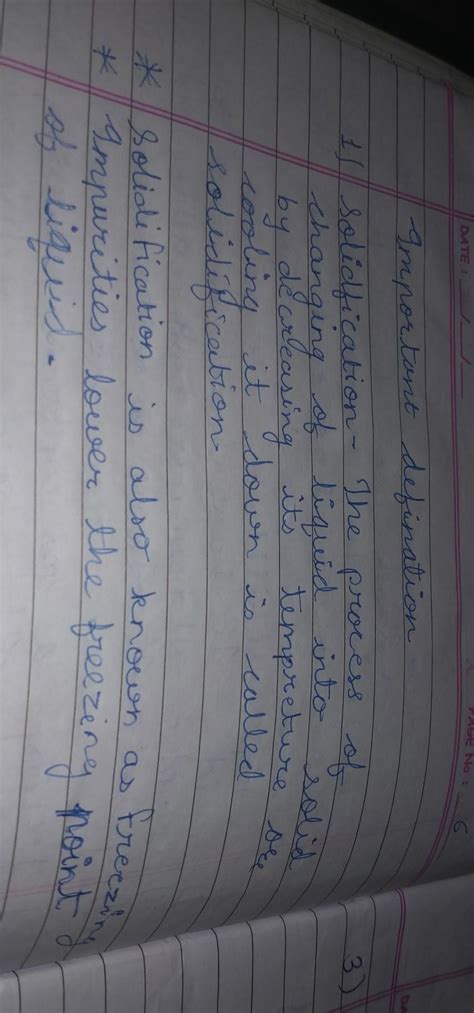 DATE: __/__/__
PAGE NO: 6
Important defination
1) Solidification - The process of
changing of liquid into solid
by decreasing its tempreture or
cooling it down is called
solidification.
* Solidification is also known as freezing
* Impurities lower the freezing point
of liquid.
3)